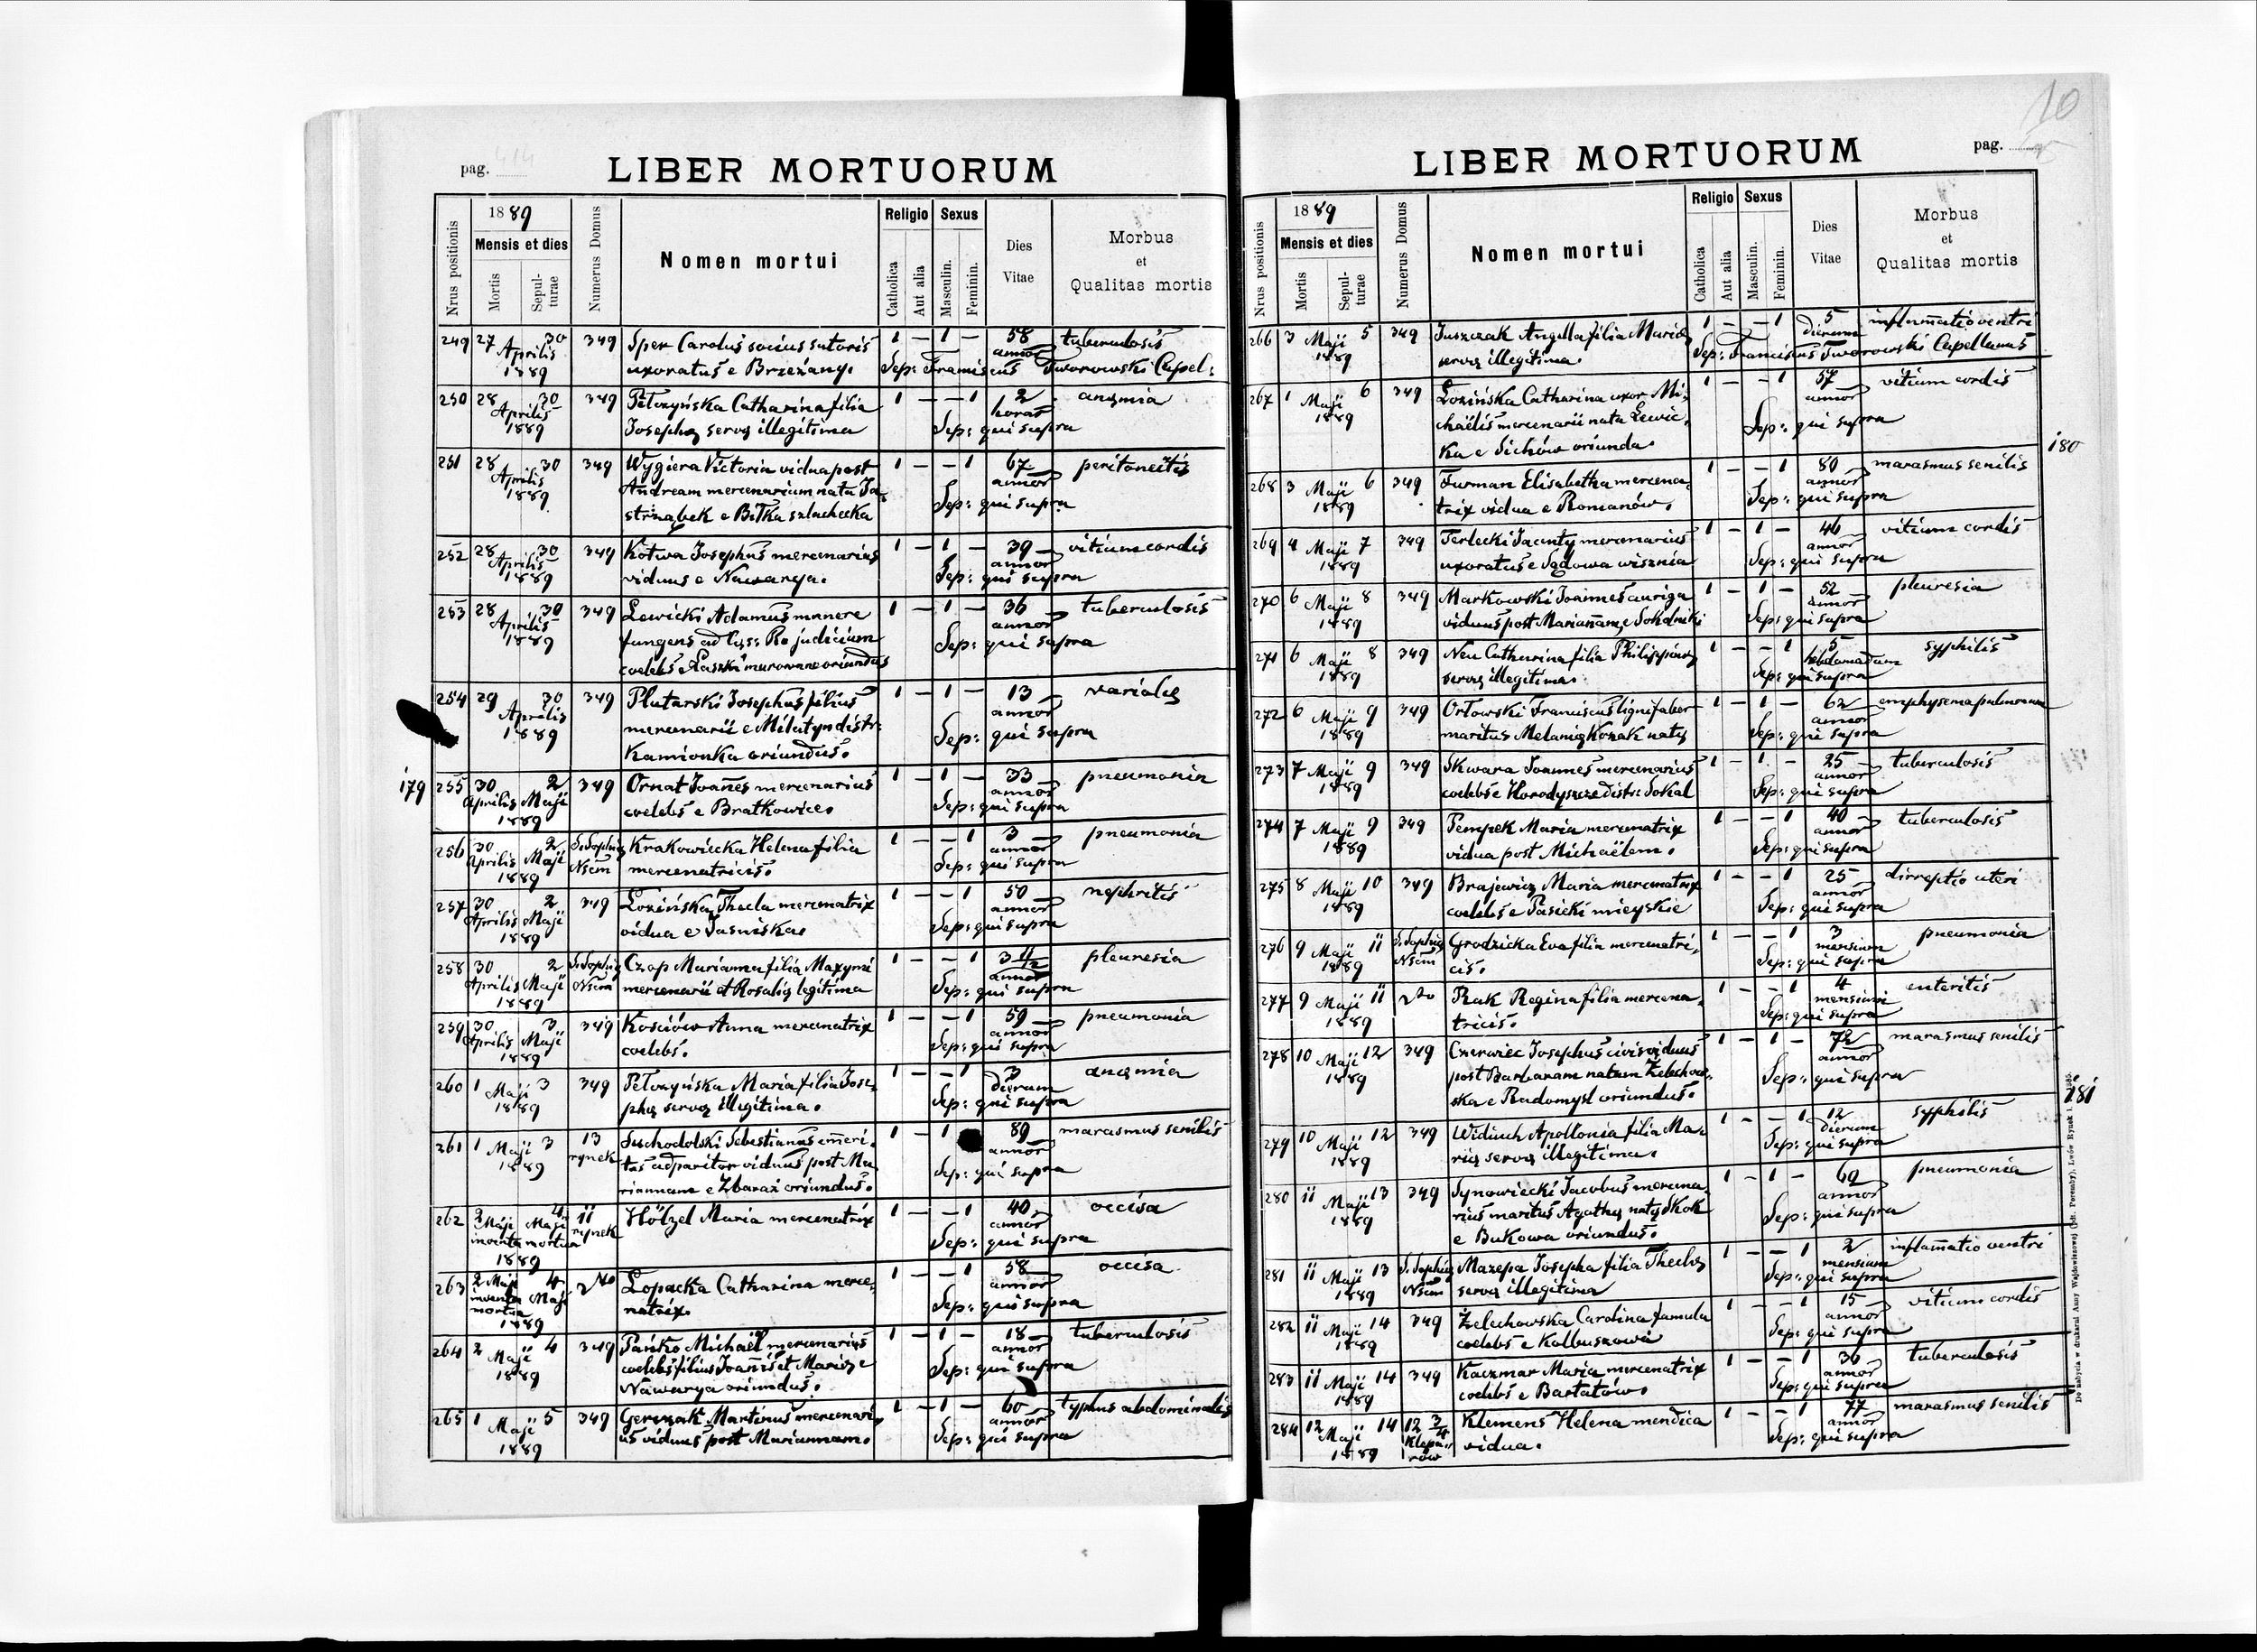 pag. 414
LIBER MORTUORUM
Nrus positionis
1889
Mensis et dies
Mortis
Sepul-
turae
Numerus Domus
Nomen mortui
Religio
Catholica
Aut alia
Sexus
Masculin.
Feminin.
Dies
Vitae
Morbus
et
Qualitas mortis
249 27 30 349 Sper Carolus socius sutoris 1 – 1 – 58 tuberculosis
Aprilis annor
1889 uxoratus e Brzeżany. Sep: Franciscus Tworowski Capel:
250 28 30 349 Pełczyńska Catharina filia 1 – – 1 2 anæmia
Aprilis horar
1889 Josephæ servæ illegitima Sep: qui supra
251 28 30 349 Wygiera Victoria vidua post 1 – – 1 67 peritoneitis
Aprilis Andream mercenarium nata Ja annor
1889 strząbek e Biłka szlachecka Sep: qui supra
252 28 30 349 Kotwa Josephus mercenarius 1 – 1 – 39 vitium cordis
Aprilis annor
1889 viduus e Nawarya. Sep: qui supra
253 28 30 349 Lewicki Adamus munere 1 – 1 – 36 tuberculosis
Aprilis fungens ad Cæs: Re judicium annor
1889 coelebs e Laszki murowane oriundus Sep: qui supra
254 29 30 349 Plutarski Josephus filius 1 – 1 – 13 variolæ
Aprilis mercenarii e Milatyn distr: annor
1889 Kamionka oriundus. Sep: qui supra
179 255 30 2 349 Ornat Joañes mercenarius 1 – 1 – 33 pneumonia
Aprilis Maji annor
1889 coelebs e Bratkowice. Sep: qui supra
256 30 2 S. Sophiæ Krakowiecka Helena filia 1 – – 1 3 pneumonia
Aprilis Maji Nsem annor
1889 mercenatricis. Sep: qui supra
257 30 2 349 Łozińska Thecla mercenatrix 1 – – 1 50 nephritis
Aprilis Maji annor
1889 vidua e Jasniska. Sep: qui supra
258 30 2 S. Sophiæ Czop Marianna filia Maxymi 1 – – 1 3 pleuresia
Aprilis Maji Nsem annor
1889 mercenarii et Rosaliæ legitima Sep: qui supra
259 30 3 349 Kosciów Anna mercenatrix 1 – – 1 59 pneumonia
Aprilis Maji annor
1889 coelebs. Sep: qui supra
260 1 Maji 3 349 Pełczyńska Maria filia Jose- 1 – – 1 3 anæmia
1889 dierum
phæ servæ illegitima. Sep: qui supra
261 1 Maji 3 13 Suchodolski Sebestianus emeri- 1 – 1 89 marasmus senilis
1889 rynek tus adparitor viduus post Ma annor
riannam e Zbaraż oriundus. Sep: qui supra
262 2 Maji 4 Maji 11 Hölzel Maria mercenatrix 1 – – 1 40 occisa
inventa mortua rynek annor
1889 Sep: qui supra
263 2 Maji 4 Maji Łopacka Catharina merce- 1 – – 1 58 occisa
inventa mortua annor
1889 natrix. Sep: qui supra
264 2 Maji 4 349 Pańko Michaël mercenarius 1 – 1 – 18 tuberculosis
1889 coelebs filius Joannis et Mariæ e annor
Nawarya oriundus. Sep: qui supra
265 1 Maji 5 349 Gerczak Martinus mercenari- 1 – 1 – 60 typhus abdominalis
1889 us viduus post Mariannam. annor
Sep: qui supra
10
LIBER MORTUORUM
pag.
Nrus positionis
1889
Mensis et dies
Mortis
Sepul-
turae
Numerus Domus
Nomen mortui
Religio
Catholica
Aut alia
Sexus
Masculin.
Feminin.
Dies
Vitae
Morbus
et
Qualitas mortis
266 3 Maji 5 349 Juszczak Angella filia Mariæ 1 – – 1 5 inflammatio ventri
1889 dierum
servæ illegitima. Sep: Franciscus Tworowski Capellanus
267 1 Maji 6 349 Łozińska Catharina uxor Mi- 1 – – 1 57 vitium cordis
1889 chaëlis mercenarii nata Lewic- annor
ka e Sichów oriunda. Sep: qui supra
180
268 3 Maji 6 349 Furman Elisabetha mercena- 1 – – 1 80 marasmus senilis
1889 trix vidua e Romanów. annor
Sep: qui supra
269 4 Maji 7 349 Terlecki Jacenty mercenarius 1 – 1 – 46 vitium cordis
1889 uxoratus e Sądowa wisznia annor
Sep: qui supra
270 6 Maji 8 349 Markowski Joannes auriga 1 – 1 – 52 pleuresia
1889 viduus post Mariañam, e Sokolniki annor
Sep: qui supra
271 6 Maji 8 349 Neu Catharina filia Philippinæ 1 – – 1 5 syphilis
1889 servæ illegitima. hebdomadum
Sep: qui supra
272 6 Maji 9 349 Orłowski Franciscus lignifaber 1 – 1 – 62 emphysema pulmonum
1889 maritus Melaniæ Kozak natæ annor
Sep: qui supra
273 7 Maji 9 349 Skwara Joannes mercenarius 1 – 1 – 25 tuberculosis
1889 coelebs e Horodyszcze distr: Sokal annor
Sep: qui supra
274 7 Maji 9 349 Pempek Maria mercenatrix 1 – – 1 40 tuberculosis
1889 vidua post Michaëlem. annor
Sep: qui supra
275 8 Maji 10 349 Brajewicz Maria mercenatrix 1 – – 1 25 dirreptio uteri
1889 coelebs e Pasieki mieyskie annor
Sep: qui supra
276 9 Maji 11 S. Sophiæ Grodzicka Eva filia mercenatri- 1 – – 1 3 pneumonia
1889 Nsem cis. mensium
Sep: qui supra
277 9 Maji 11 Rak Regina filia mercena- 1 – – 1 4 enteritis
1889 tricis. mensium
Sep: qui supra
278 10 Maji 12 349 Czerwiec Josephus civis viduus 1 – 1 – 72 marasmus senilis
1889 post Barbaram natam Żelechow- annor
ska e Radomysl oriundus. Sep: qui supra
181
279 10 Maji 12 349 Widiuch Apollonia filia Ma- 1 – – 1 12 syphilis
1889 riæ servæ illegitima. dierum
Sep: qui supra
280 11 Maji 13 349 Synowiecki Jacobus mercena- 1 – 1 – 62 pneumonia
1889 rius maritus Agathæ natæ Skok annor
e Bukowa oriundus. Sep: qui supra
281 11 Maji 13 S. Sophiæ Mazepa Josepha filia Theclæ 1 – – 1 2 inflamatio ventri
1889 Nsem servæ illegitima mensium
Sep: qui supra
282 11 Maji 14 349 Żelechowska Carolina famula 1 – – 1 15 vitium cordis
1889 coelebs e Kolbuszowa annor
Sep: qui supra
283 11 Maji 14 349 Kaczmar Maria mercenatrix 1 – – 1 30 tuberculosis
1889 coelebs e Bartatów. annor
Sep: qui supra
284 12 Maji 14 12 3/4 Klemens Helena mendica 1 – – 1 77 marasmus senilis
1889 Klepa- rów vidua. annor
Sep: qui supra